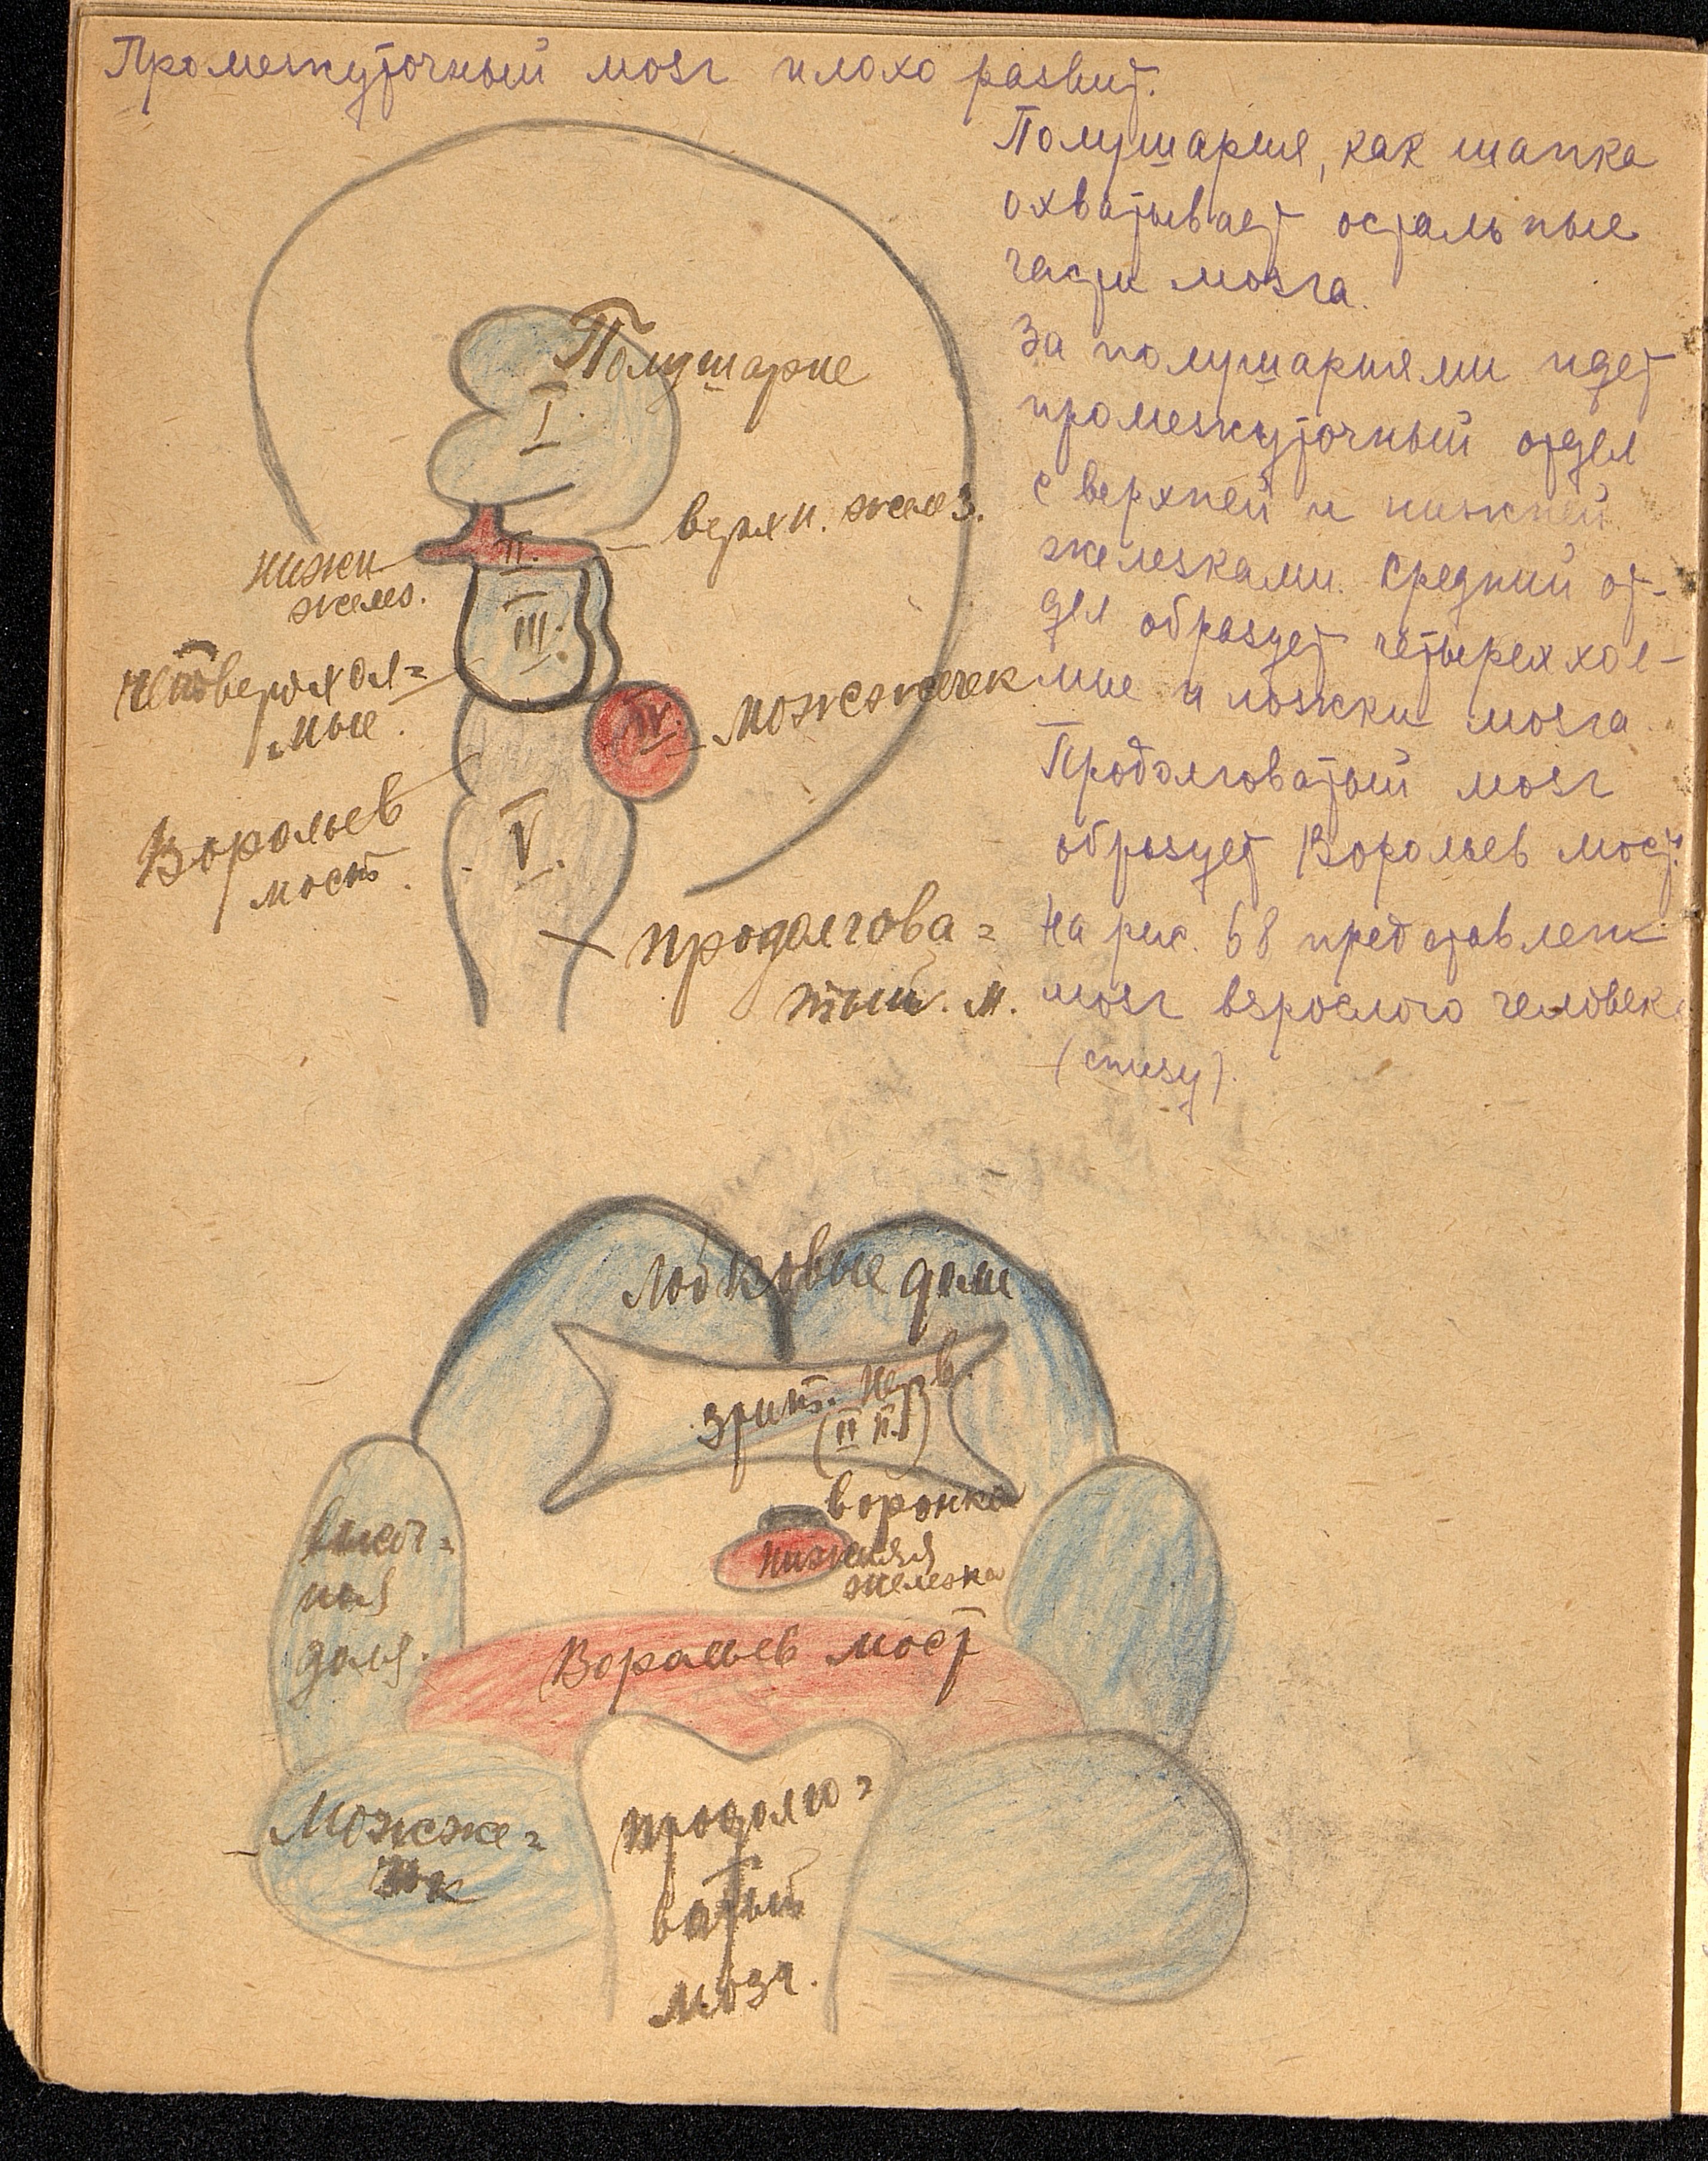 Промежуточный мозг плохо развит.
Полушария, как шапка
охватывает остальные
части мозга.
За полушариями идет
промежуточный отдел
с верхней и нижней
железками. Средний от-
дел образует четыреххол-
мие и ножки мозга
Продолговатый мозг
образует Варольев мост.
На рис. 68 представлен
мозг взрослого человека
(снизу).
Полушарие
I
верхн. желез.
II.
нижн
желез.
III.
четверохол=
мие.
IV.
можжечек
Варольев
мост.
V.
продолгова=
тый. м.
Лобковые доли
зрит. нерв.
(II п.)
воронка
нижняя
железка
височ=
ная
доля.
Варольев мост
Можже=
чок
продолго=
ватый
мозг.